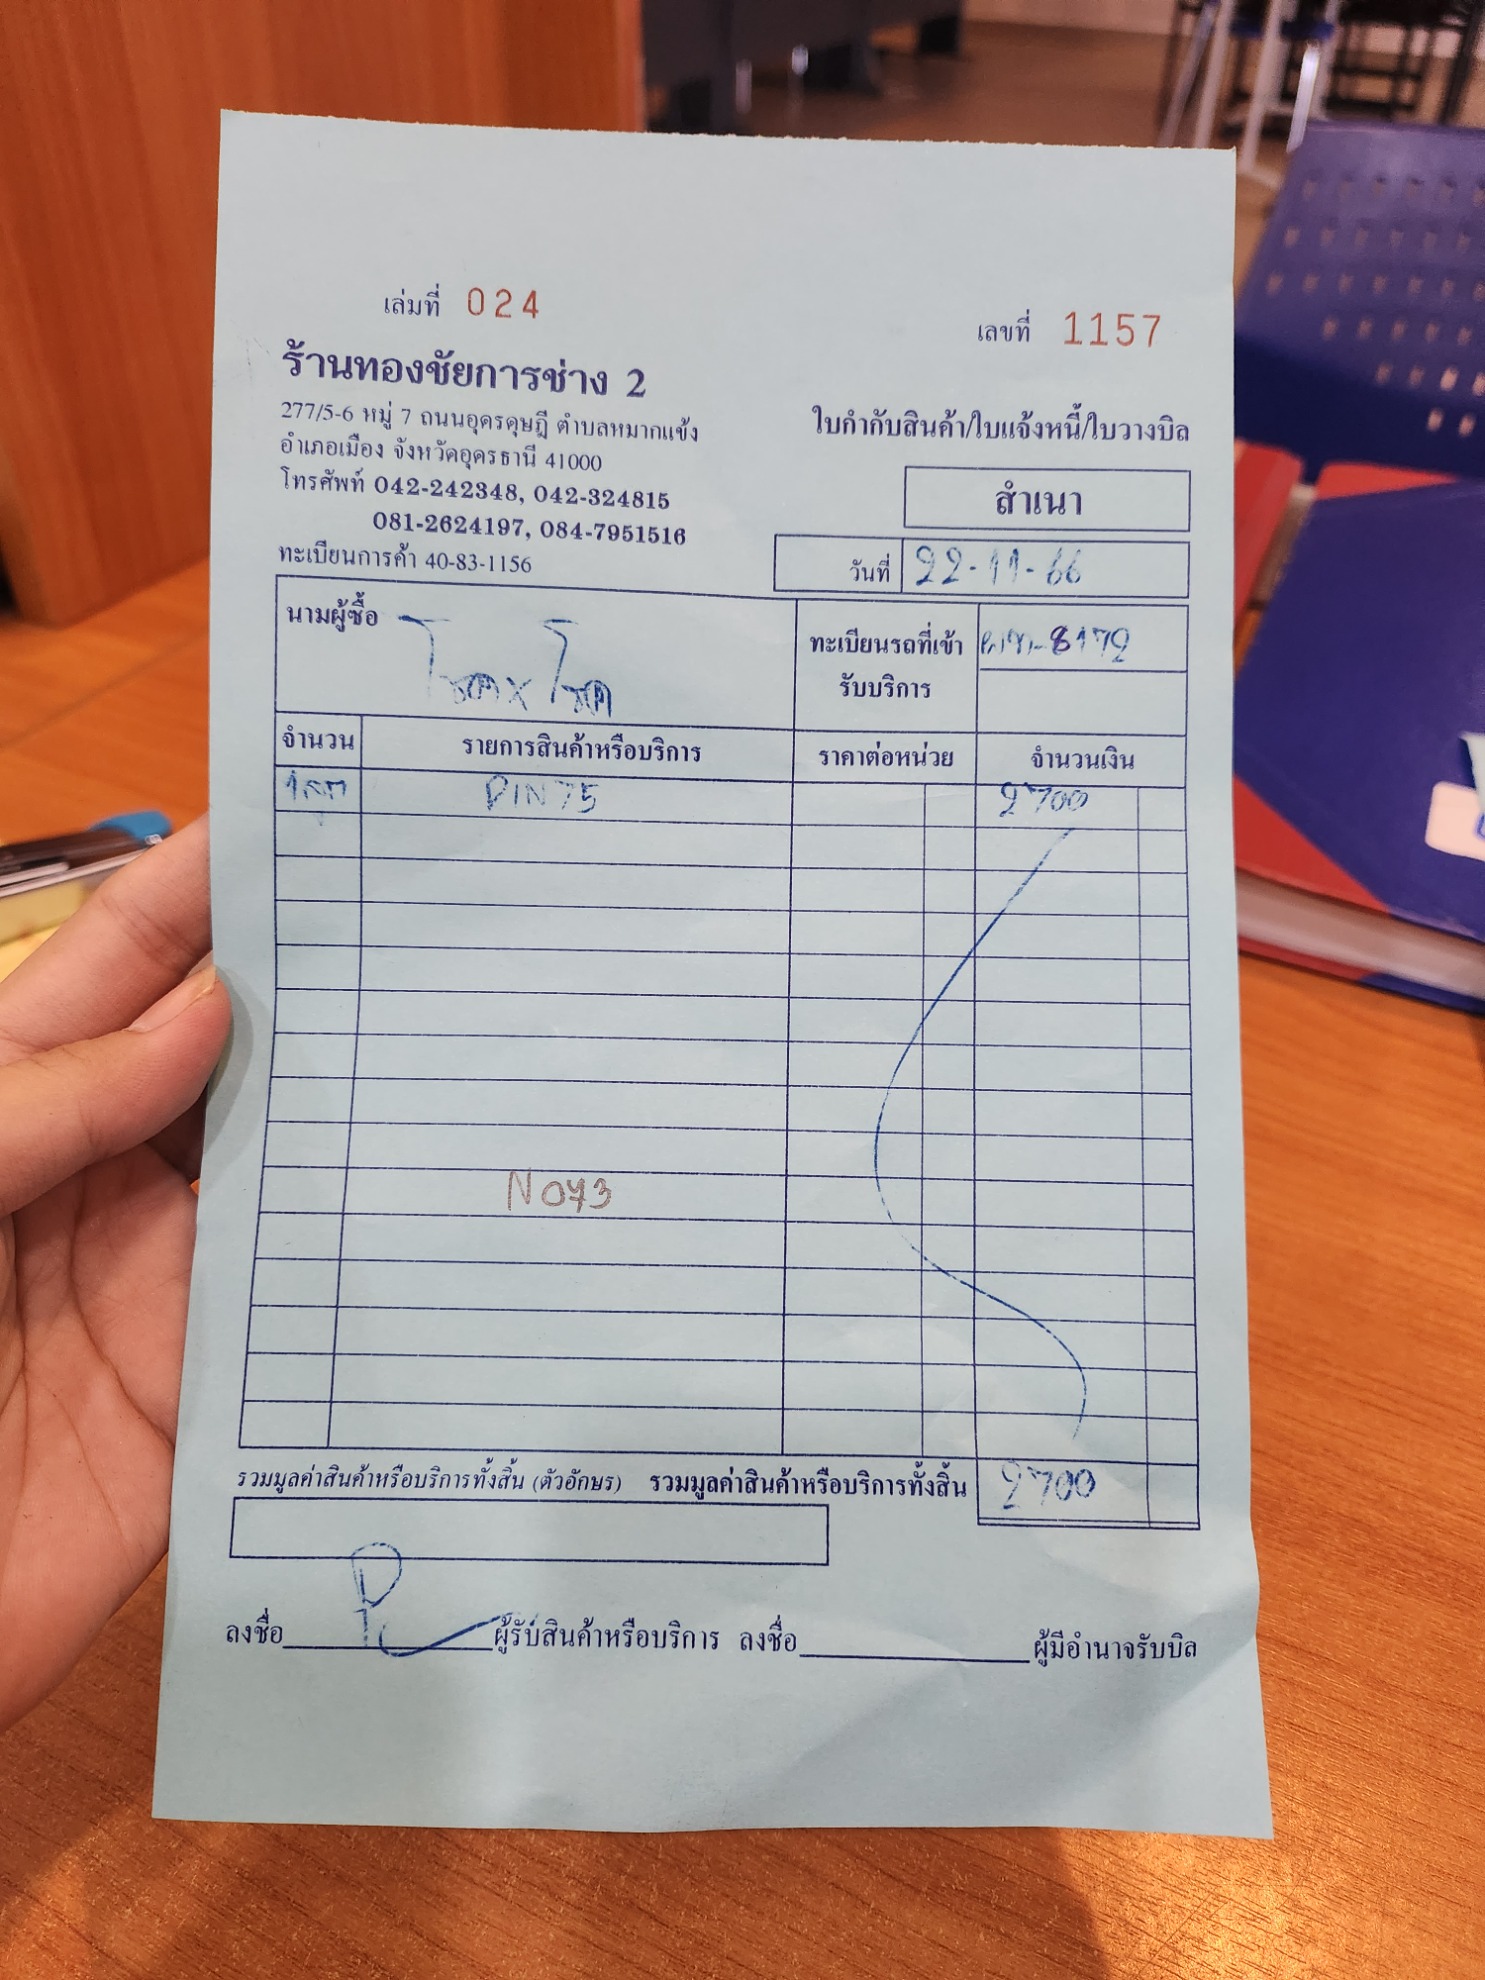 เล่มที่ 024
เลขที่ 1157
ร้านทองชัยการช่าง 2
277/5-6 หมู่ 7 ถนนอุดรดุษฎี ตำบลหมากแข้ง
อำเภอเมือง จังหวัดอุดรธานี 41000
โทรศัพท์ 042-242348, 042-324815
081-2624197, 084-7951516
ทะเบียนการค้า 40-83-1156
ใบกำกับสินค้า/ใบแจ้งหนี้/ใบวางบิล
สำเนา
วันที่ 22-11-66
นามผู้ซื้อ โชคxโชค
ทะเบียนรถที่เข้า
รับบริการ
-8172
จำนวน รายการสินค้าหรือบริการ ราคาต่อหน่วย จำนวนเงิน
1ลูก DIN75 2700
N073
รวมมูลค่าสินค้าหรือบริการทั้งสิ้น (ตัวอักษร) รวมมูลค่าสินค้าหรือบริการทั้งสิ้น 2700
ลงชื่อ ผู้รับสินค้าหรือบริการ ลงชื่อ ผู้มีอำนาจรับบิล